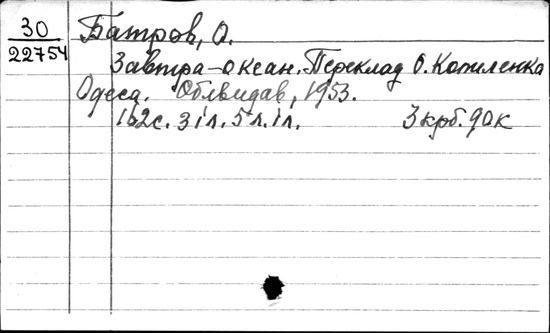 30 Батров, О.
22754
Завтра-океан. Переклад О. Копиленка
Одеса. Облвидав, 1953.
162с. з іл. 5 л. іл. 3 крб. 90к